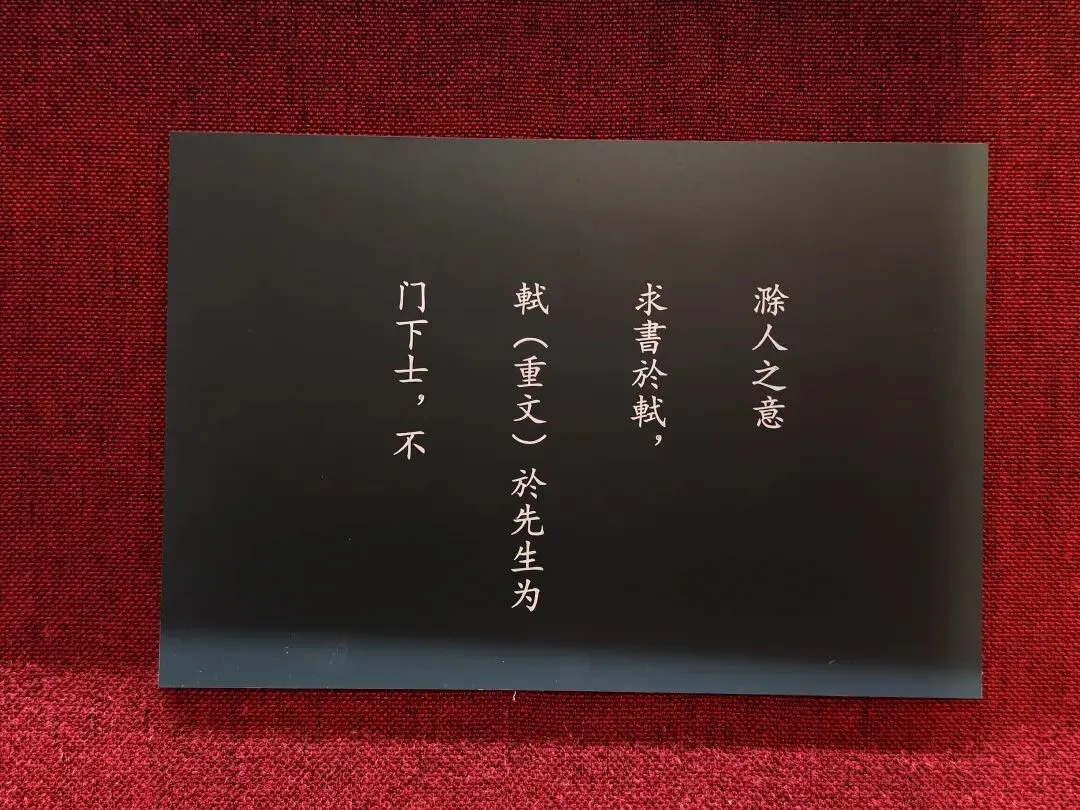 滁人之意
求書於軾，
軾（重文）於先生为
门下士，不